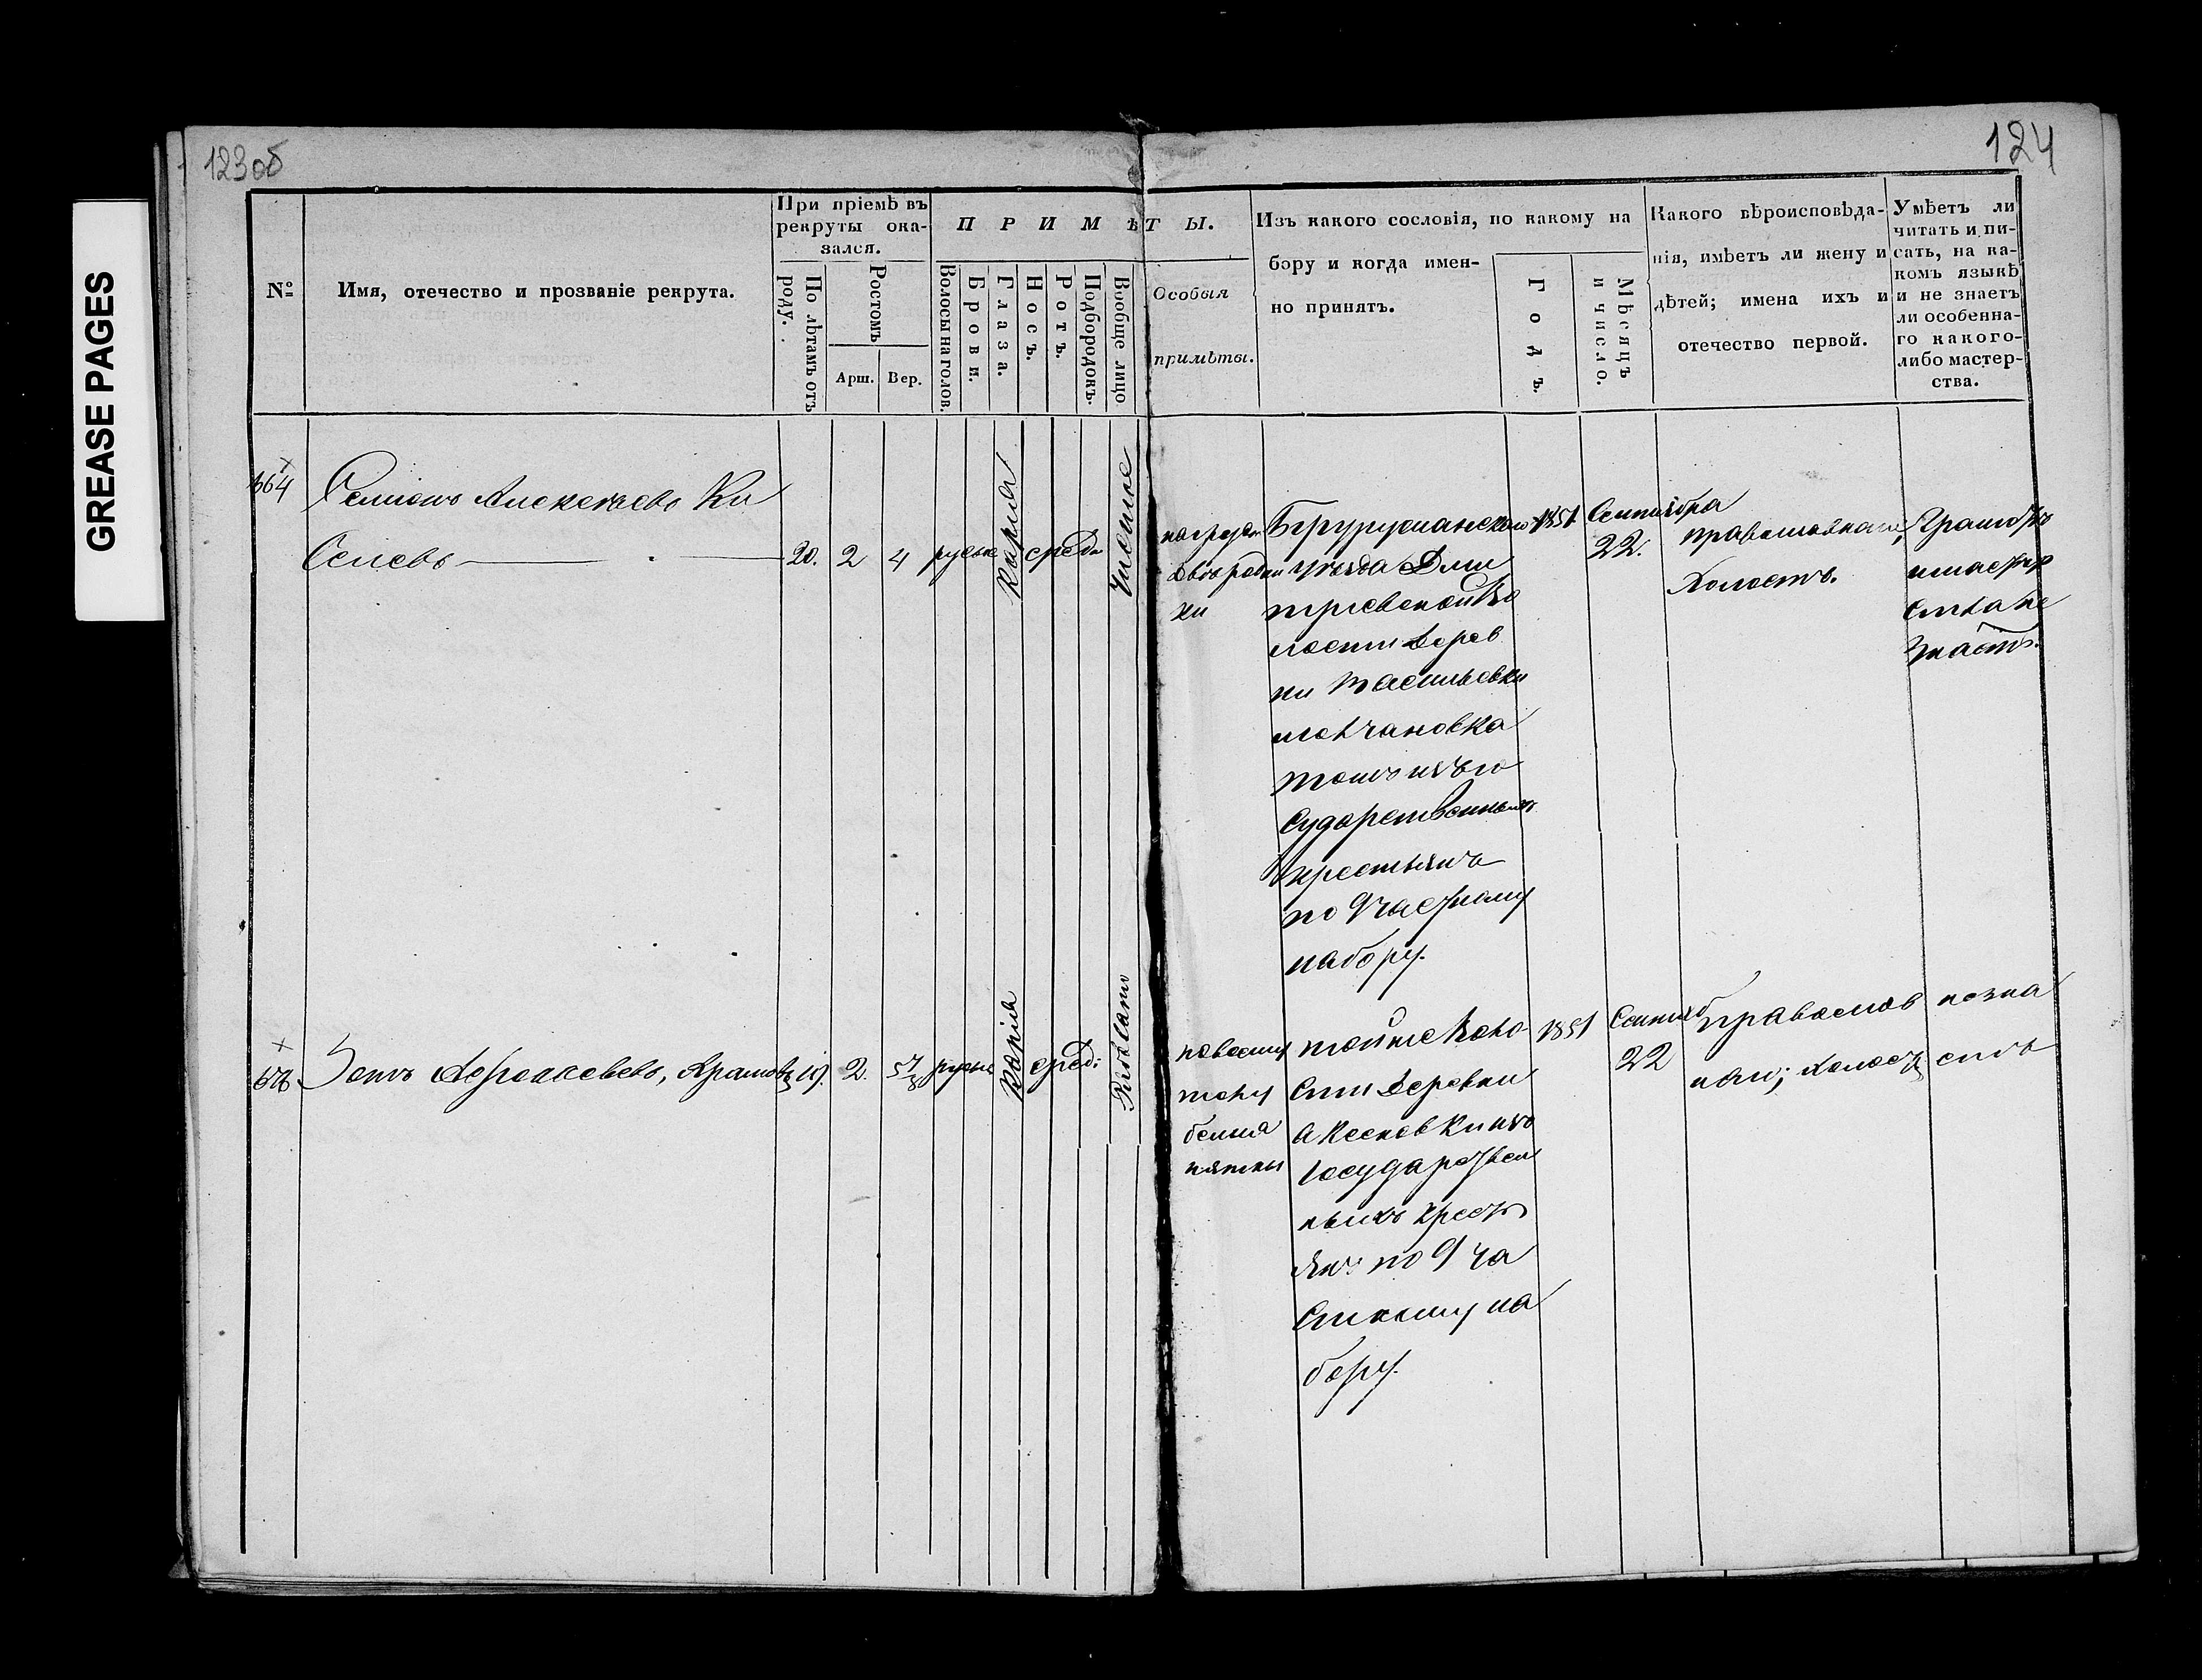 GREASE PAGES
123об
124
№
Имя, отечество и прозваніе рекрута.
При пріемѣ въ рекруты ока-зался.
По лѣтамъ отъ роду.
Ростомъ
Арш.
Вер.
ПРИМѢТЫ.
Волосы на голов.
Брови.
Глаза.
Носъ.
Ротъ.
Подбородокъ.
Вообще лицо
Особыя
примѣты.
Изъ какого сословія, по какому на
бору и когда имен-
но принятъ.
Годъ.
Мѣсяцъ и число.
Какого вѣроисповѣда-
нія, имѣетъ ли жену и
дѣтей; имена ихъ и
отечество первой.
Умѣетъ ли
читать и пи-
сать, на ка-
комъ языкѣ
и не знаетъ
ли особенна-
го какого-
либо мастер-
ства.
664
Семионъ Алексѣевъ Ки
Селевъ
20.
2
4
русые
Карія
сред
Чистое
двѣ родин
ки
Бугурусланскаго
уѣзда Дми
тріевской Во
лости Дерев
ни Васильевки
Молчановка
тожъ изъ го
сударственныхъ
крестьянъ
по 9 частному
набору.
1851
Сентября
22.
православнаго,
Холостъ.
Грамотѣ
и мастер
ства не
знаетъ.
Зотъ Аѳонасьевъ, Храмовъ
19.
2.
5 7/8
русые
Карія
сред:
Рябовато
той же Воло
сти Деревни
Аксеновки изъ
государствен
ныхъ крестъ
янъ по 9 ча
стному на
бору.
1851
Сентяб
22
православ
наго; холостъ
незна
етъ